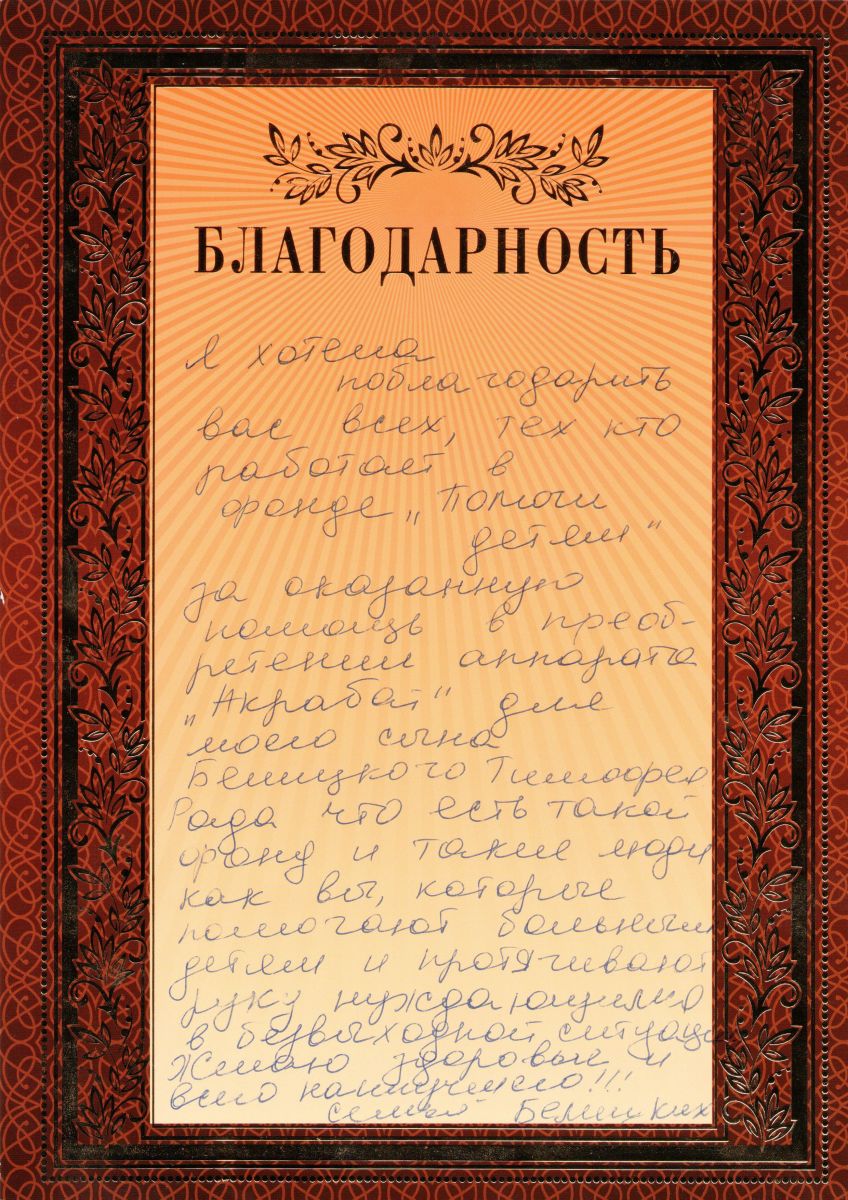 БЛАГОДАРНОСТЬ
Я хотела
поблагодарить
вас всех, тех кто
работает в
фонде „Помоги
детям"
за оказанную
помощь в преоб-
ретении аппарата
„Акробат" для
моего сына
Белицкого Тимофея
Рада что есть такой
фонд и такие люди
как вы, которые
помогают больным
детям и протягивают
руку нуждающимся
в безвыходной ситуации
Желаю здоровья и
всего наилучшего!!!
семья Белицких